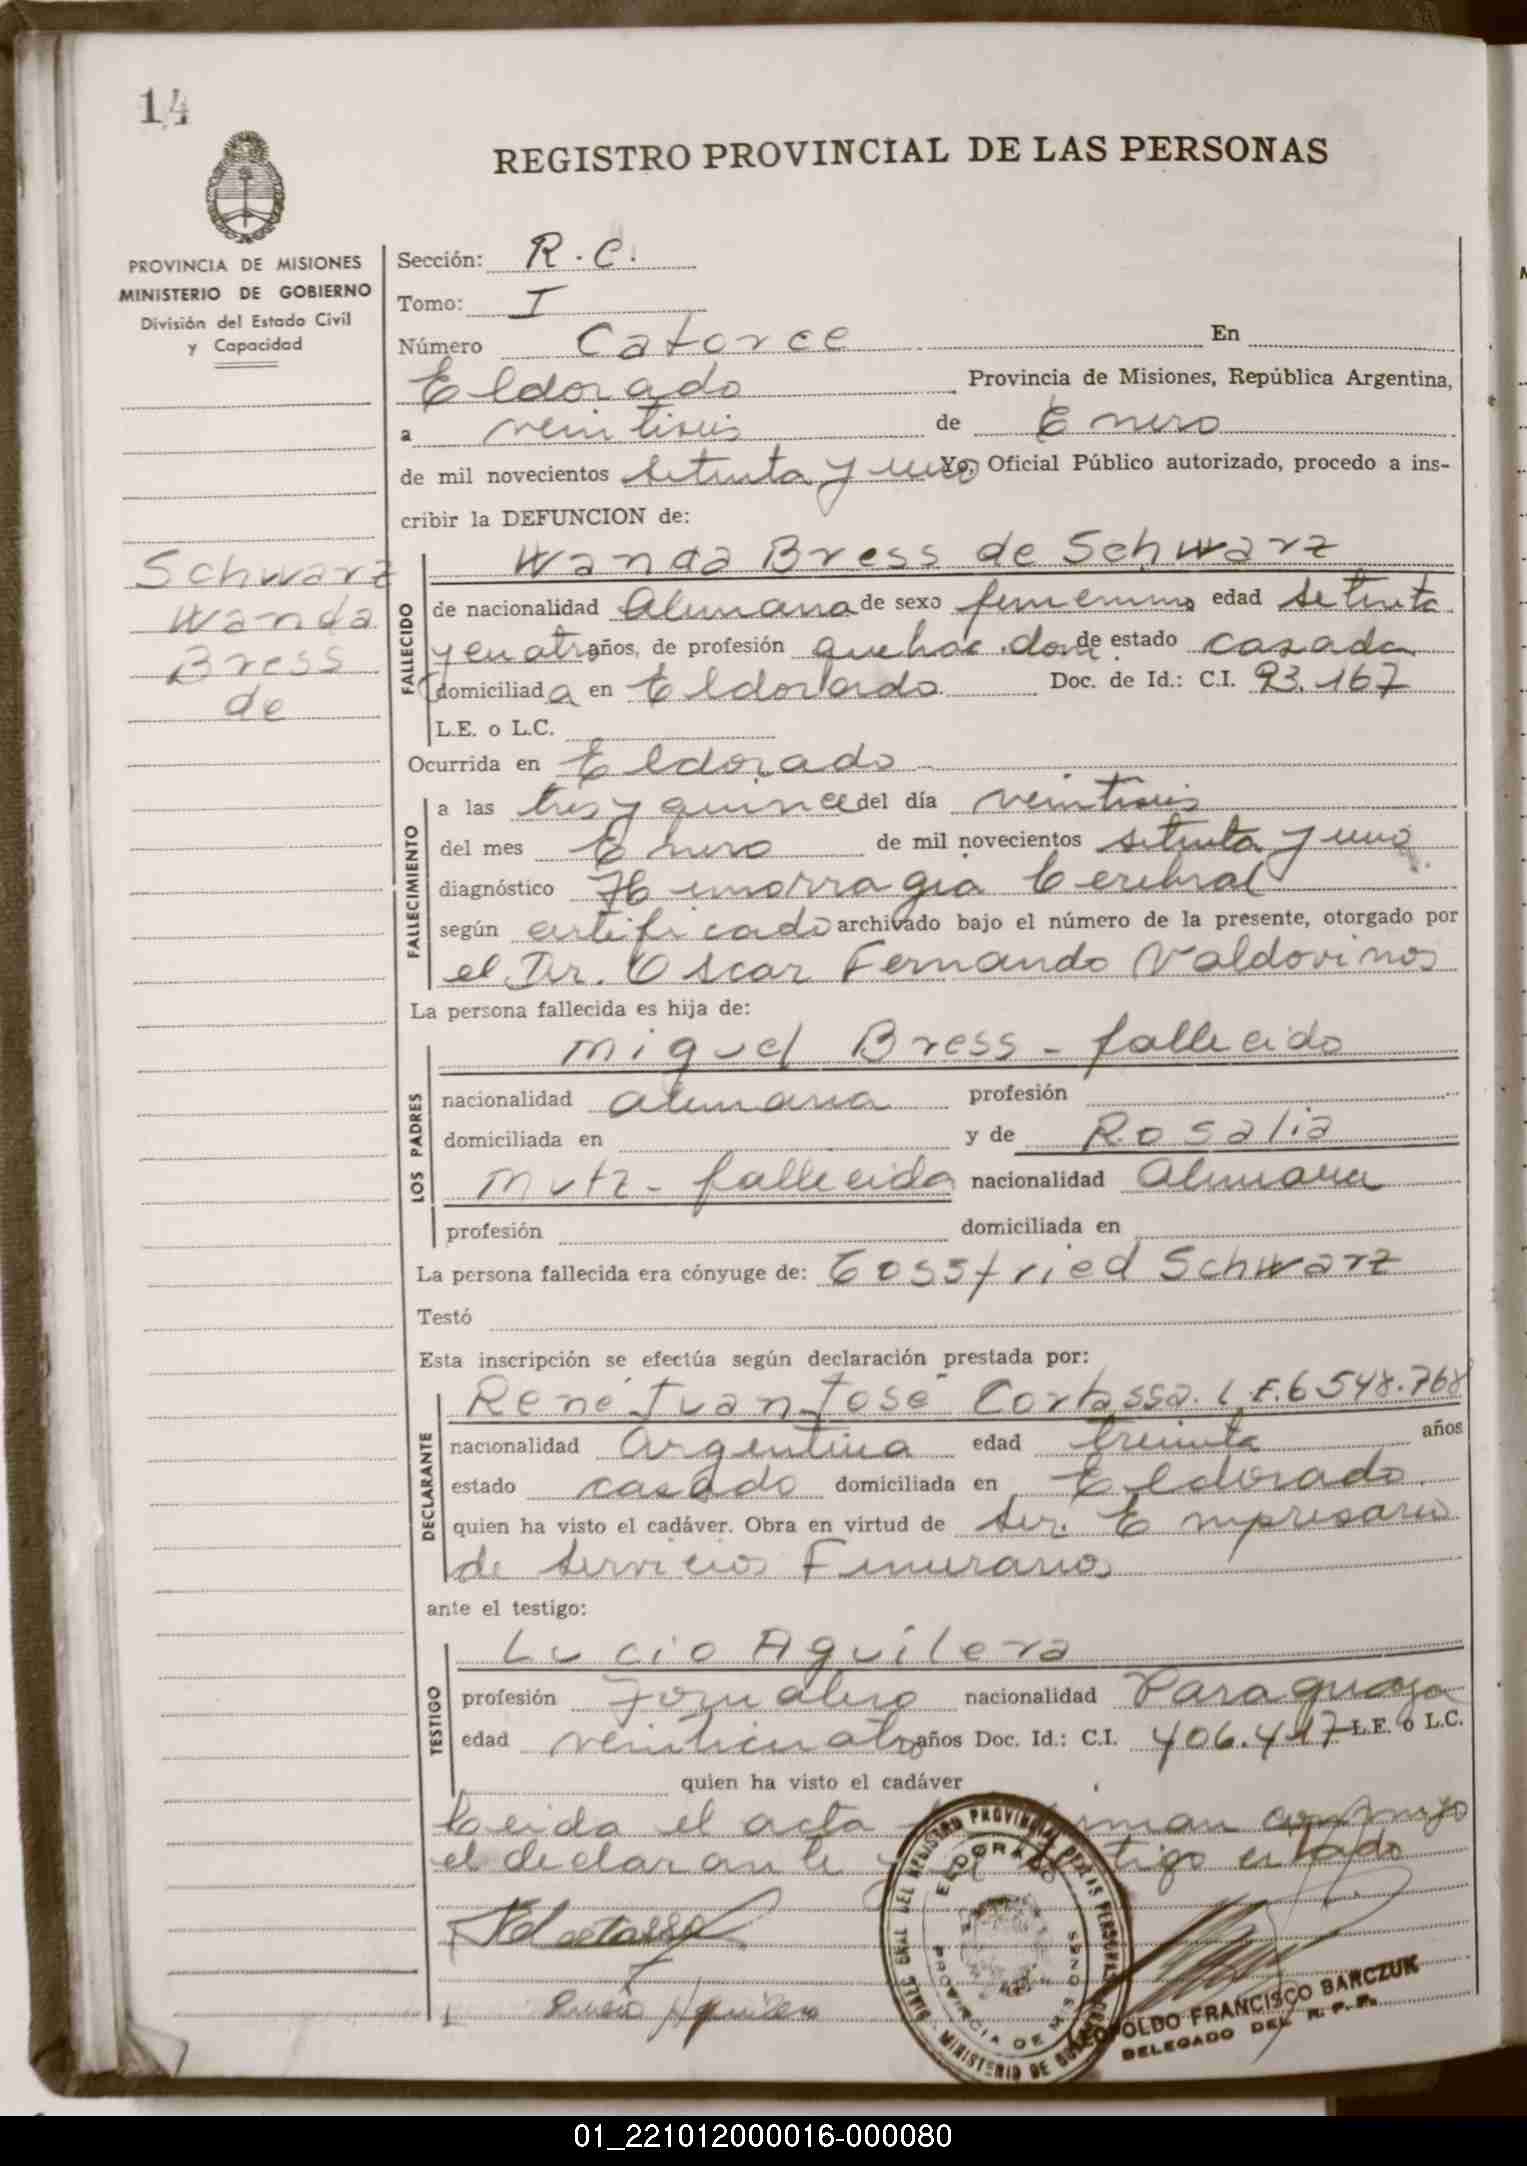 14
REGISTRO PROVINCIAL DE LAS PERSONAS
PROVINCIA DE MISIONES
MINISTERIO DE GOBIERNO
División del Estado Civil
y Capacidad
Schwarz
Wanda
Bress
de
Sección: R.C.
Tomo: I
Número Catorce En
Eldorado Provincia de Misiones, República Argentina,
a veintiseis de Enero
de mil novecientos setenta y uno Yo, Oficial Público autorizado, procedo a ins-
cribir la DEFUNCION de:
Wanda Bress de Schwarz
FALLECIDO
de nacionalidad Alemana de sexo femenino edad setenta
y cuatro años, de profesión quehac. dom. de estado casada
domiciliada en Eldorado Doc. de Id.: C.I. 93.167
L.E. o L.C.
Ocurrida en Eldorado
FALLECIMIENTO
a las tres y quince del día veintiseis
del mes Enero de mil novecientos setenta y uno
diagnóstico Hemorragia Cerebral
según certificado archivado bajo el número de la presente, otorgado por
el Dr. Oscar Fernando Valdovinos
La persona fallecida es hija de:
LOS PADRES
Miguel Bress - fallecido
nacionalidad alemana profesión
domiciliada en y de Rosalia
Mutz - fallecida nacionalidad Alemana
profesión domiciliada en
La persona fallecida era cónyuge de: Gossfried Schwarz
Testó
Esta inscripción se efectúa según declaración prestada por:
DECLARANTE
René Juan José Cortassa. L.E. 6548.768
nacionalidad Argentina edad treinta años
estado casado domiciliada en Eldorado.
quien ha visto el cadáver. Obra en virtud de ser. Empresario
de Servicios Funerarios
ante el testigo:
TESTIGO
Lucio Aguilera
profesión Jornalero nacionalidad Paraguaya
edad veinticuatro años Doc. Id.: C.I. 406.417 L.E. o L.C.
quien ha visto el cadáver
Leida el acta firman conmigo
el declarante y el testigo citado
Lucio Aguilera
ELDORADO
PROVINCIA DE MISIONES
LEOPOLDO FRANCISCO BARCZUK
DELEGADO DEL R. P. P.
01_221012000016-000080